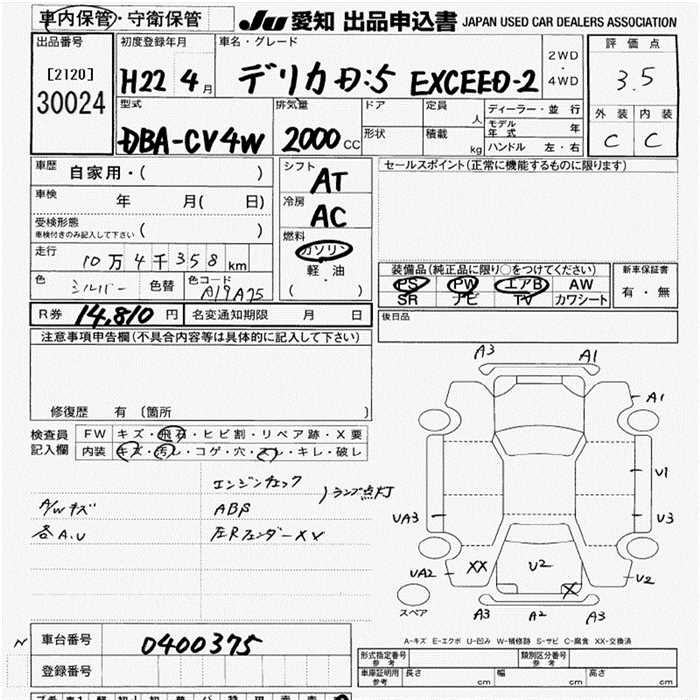 車内保管・守衛保管 JU 愛知 出品申込書 JAPAN USED CAR DEALERS ASSOCIATION
出品番号 初度登録年月 車名・グレード 2WD・4WD 評価点
[2120] 30024 H22 4月 デリカD:5 EXCEED-2 3.5
型式 排気量 ドア 定員 人 ディーラー・並行 外装 内装
DBA-CV4W 2000CC 形状 積載 kg モデル年式 年 C C
ハンドル 左・右
車歴 自家用・( ) シフト AT セールスポイント(正常に機能するものに限ります)
車検 年 月( 日) 冷房 AC
受検形態 車検付きのみ記入して下さい ( ) 燃料 ガソリン
走行 10万4千358km 軽油 装備品(純正品に限り○をつけてください) 新車保証書
色 シルバー 色替 色コード A19A75 ( ) PS PW エアB AW 有・無
SR ナビ TV カワシート
R券 14,810円 名変通知期限 月 日 後日品
注意事項申告欄(不具合内容等は具体的に記入して下さい)
修復歴 有 (箇所 )
検査員記入欄 FW キズ・飛石・ヒビ割・リペア跡・X要
内装 キズ・汚れ・コゲ・穴・スレ・キレ・破レ
エンジンチェック
A/Wキズ ABS )ランプ点灯
各A.U 左Rフェンダーxx
A3 A1
A1
U1
UA3 U3
UA2 XX U2 U2
X
スペア A3 A2 A3
A-キズ E-エクボ U-凹み W-補修跡 S-サビ C-腐食 XX-交換済
N 車台番号 0400375
登録番号
形式指定番号 参考 類別区分番号 参考
車庫証明用 参考 長さ cm 幅 cm 高さ cm